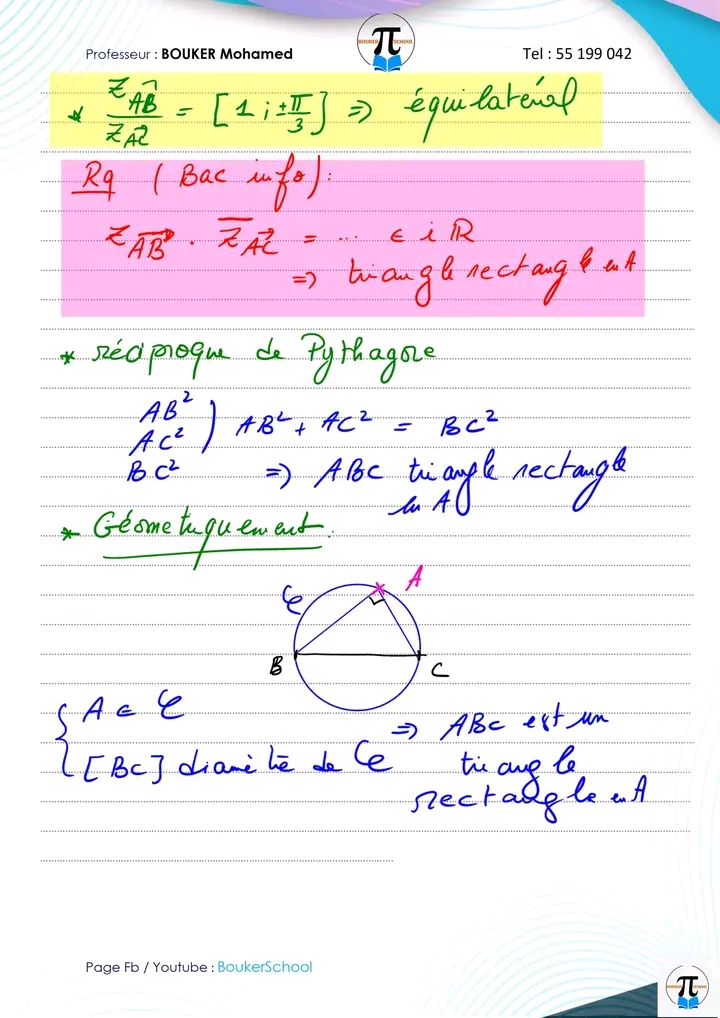 Professeur : BOUKER Mohamed
BOUKER SCHOOL
π
Tel : 55 199 042
* Z_AB⃗ / Z_AC⃗ = [1 ; ±π/3] ⇒ équilatéral
Rq (Bac info):
Z_AB⃗ . Z̅_AC⃗ = ... ∈ iℝ
⇒ triangle rectangle en A
* réciproque de Pythagore
AB²
AC² ) AB² + AC² = BC²
BC² ⇒ ABC triangle rectangle
en A
* Géometriquement.
𝒞 A
B C
{ A ∈ 𝒞
[BC] diamètre de 𝒞 ⇒ ABC est un
triangle
rectangle en A
Page Fb / Youtube : BoukerSchool
BOUKER SCHOOL
π